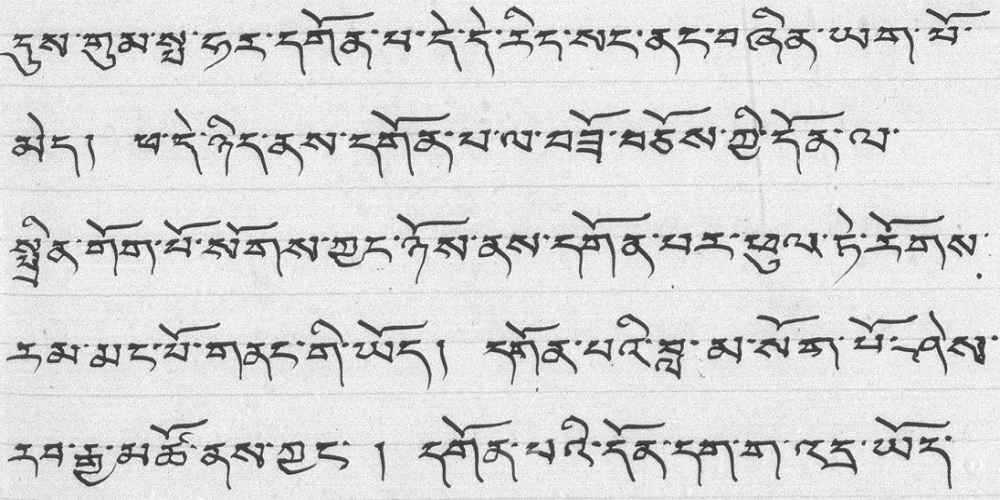 དུས་གུམ་སྔ་དྷར་དགོན་པ་དེ་དེ་རིང་སང་ནང་བཞིན་ཡག་པོ་
མེད། ཕ་དེ་ཉིད་ནས་དགོན་པ་ལ་བཟོ་བཅོས་ཀྱི་དོན་ལ་
སྦྱིན་གོག་པོ་སོགས་ཀྱང་ཉོས་ནས་དགོན་པར་ཕུལ་ཏེ་རོགས་
རམ་མང་པོ་གནང་གི་ཡོད། དགོན་པའི་བླ་མ་སོག་པོ་ཤེས་
རབ་རྒྱ་མཚོ་ནས་ཀྱང་། དགོན་པའི་དོན་དག་ག་འདྲ་ཡོད་